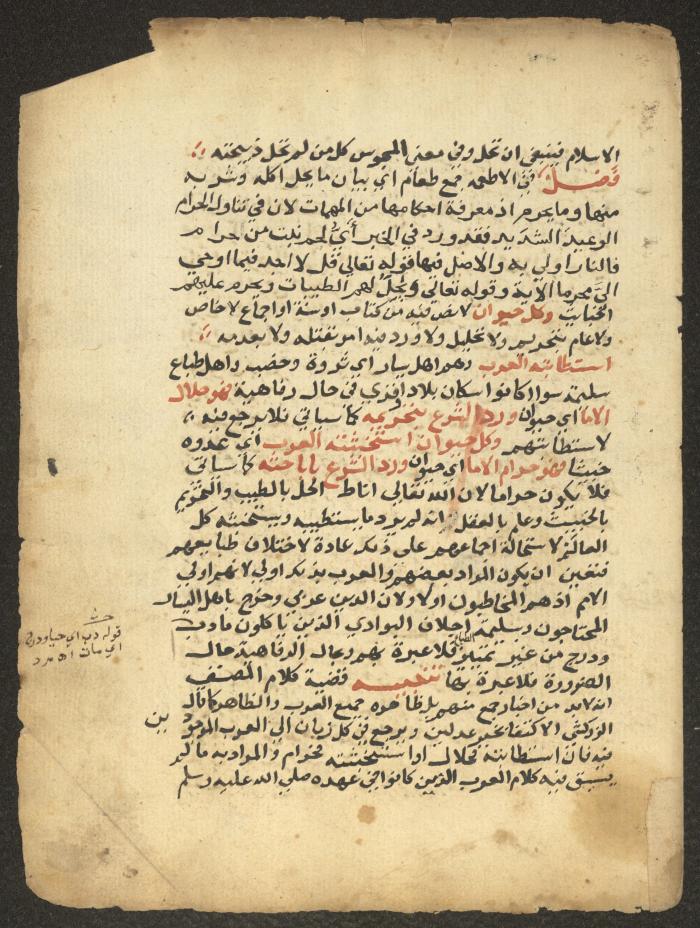 الاسلام فينبغي ان تحل وفي معنى المجوس كل من لم تحل ذبيحته
فصل في الاطعمة جمع طعام اي بيان ما يحل اكله وشربه
منها وما يحرم اذ معرفة احكامها من المهمات لان في تناول الحرام
الوعيد الشديد فقد ورد في الخبر أي لحم نبت من حرام
فالنار اولى به والاصل فيها قوله تعالى قل لا اجد فيما اوحي
الي محرما الآية وقوله تعالى ويحل لهم الطيبات ويحرم عليهم
الخبايث وكل حيوان لا نص فيه من كتاب او سنة او اجماع لا خاص
ولا عام بتحريم ولا تحليل ولا ورد فيه امر بقتله ولا بعدمه
استطابته العرب وهم اهل يسار اي ثروة وخصب واهل طباع
سليمة سواء كانوا سكان بلاد او قري في حال رفاهية فهو حلال
الا ما اي حيوان ورد الشرع بتحريمه كما سياتي فلا يرجع فيه
لاستطابتهم وكل حيوان استخبثته العرب اي عدوه
خبيثا فهو حرام الا ما اي حيوان ورد الشرع باباحته كما سياتي
فلا يكون حراما لان الله تعالى اناط الحل بالطيب والتحريم
بالخبيث وعلم بالعقل انه لم يرد ما يستطيبه ويستخبثه كل
العالم لاستحالة اجماعهم على ذلك عادة لاختلاف طبايعهم
فتعين ان يكون المراد بعضهم والعرب بذلك اولى لانهم اولى
الامم اذ هم المخاطبون اولا ولان الدين عربي وخرج باهل اليسار
المحتاجون وسليمة اجلاف البوادي الذين ياكلون ما دب
ودرج من غير تمييز فلا عبرة بهم وبحال الرفاهية حال
الضرورة فلا عبرة بها تنبيه قضية كلام المصنف
انه لابد من اخبار جمع منهم بل ظاهره جميع العرب والظاهر كما قال
الزركشي الاكتفا بخبر عدلين ويرجع في كل زمان الى العرب الموجودين
فيه فان استطابته فحلال او استخبثته فحرام والمراد به ما لم
يسبق فيه كلام العرب الذين كانوا في عهده صلى الله عليه وسلم
قوله دب اي حيا ودرج
اي مات اه